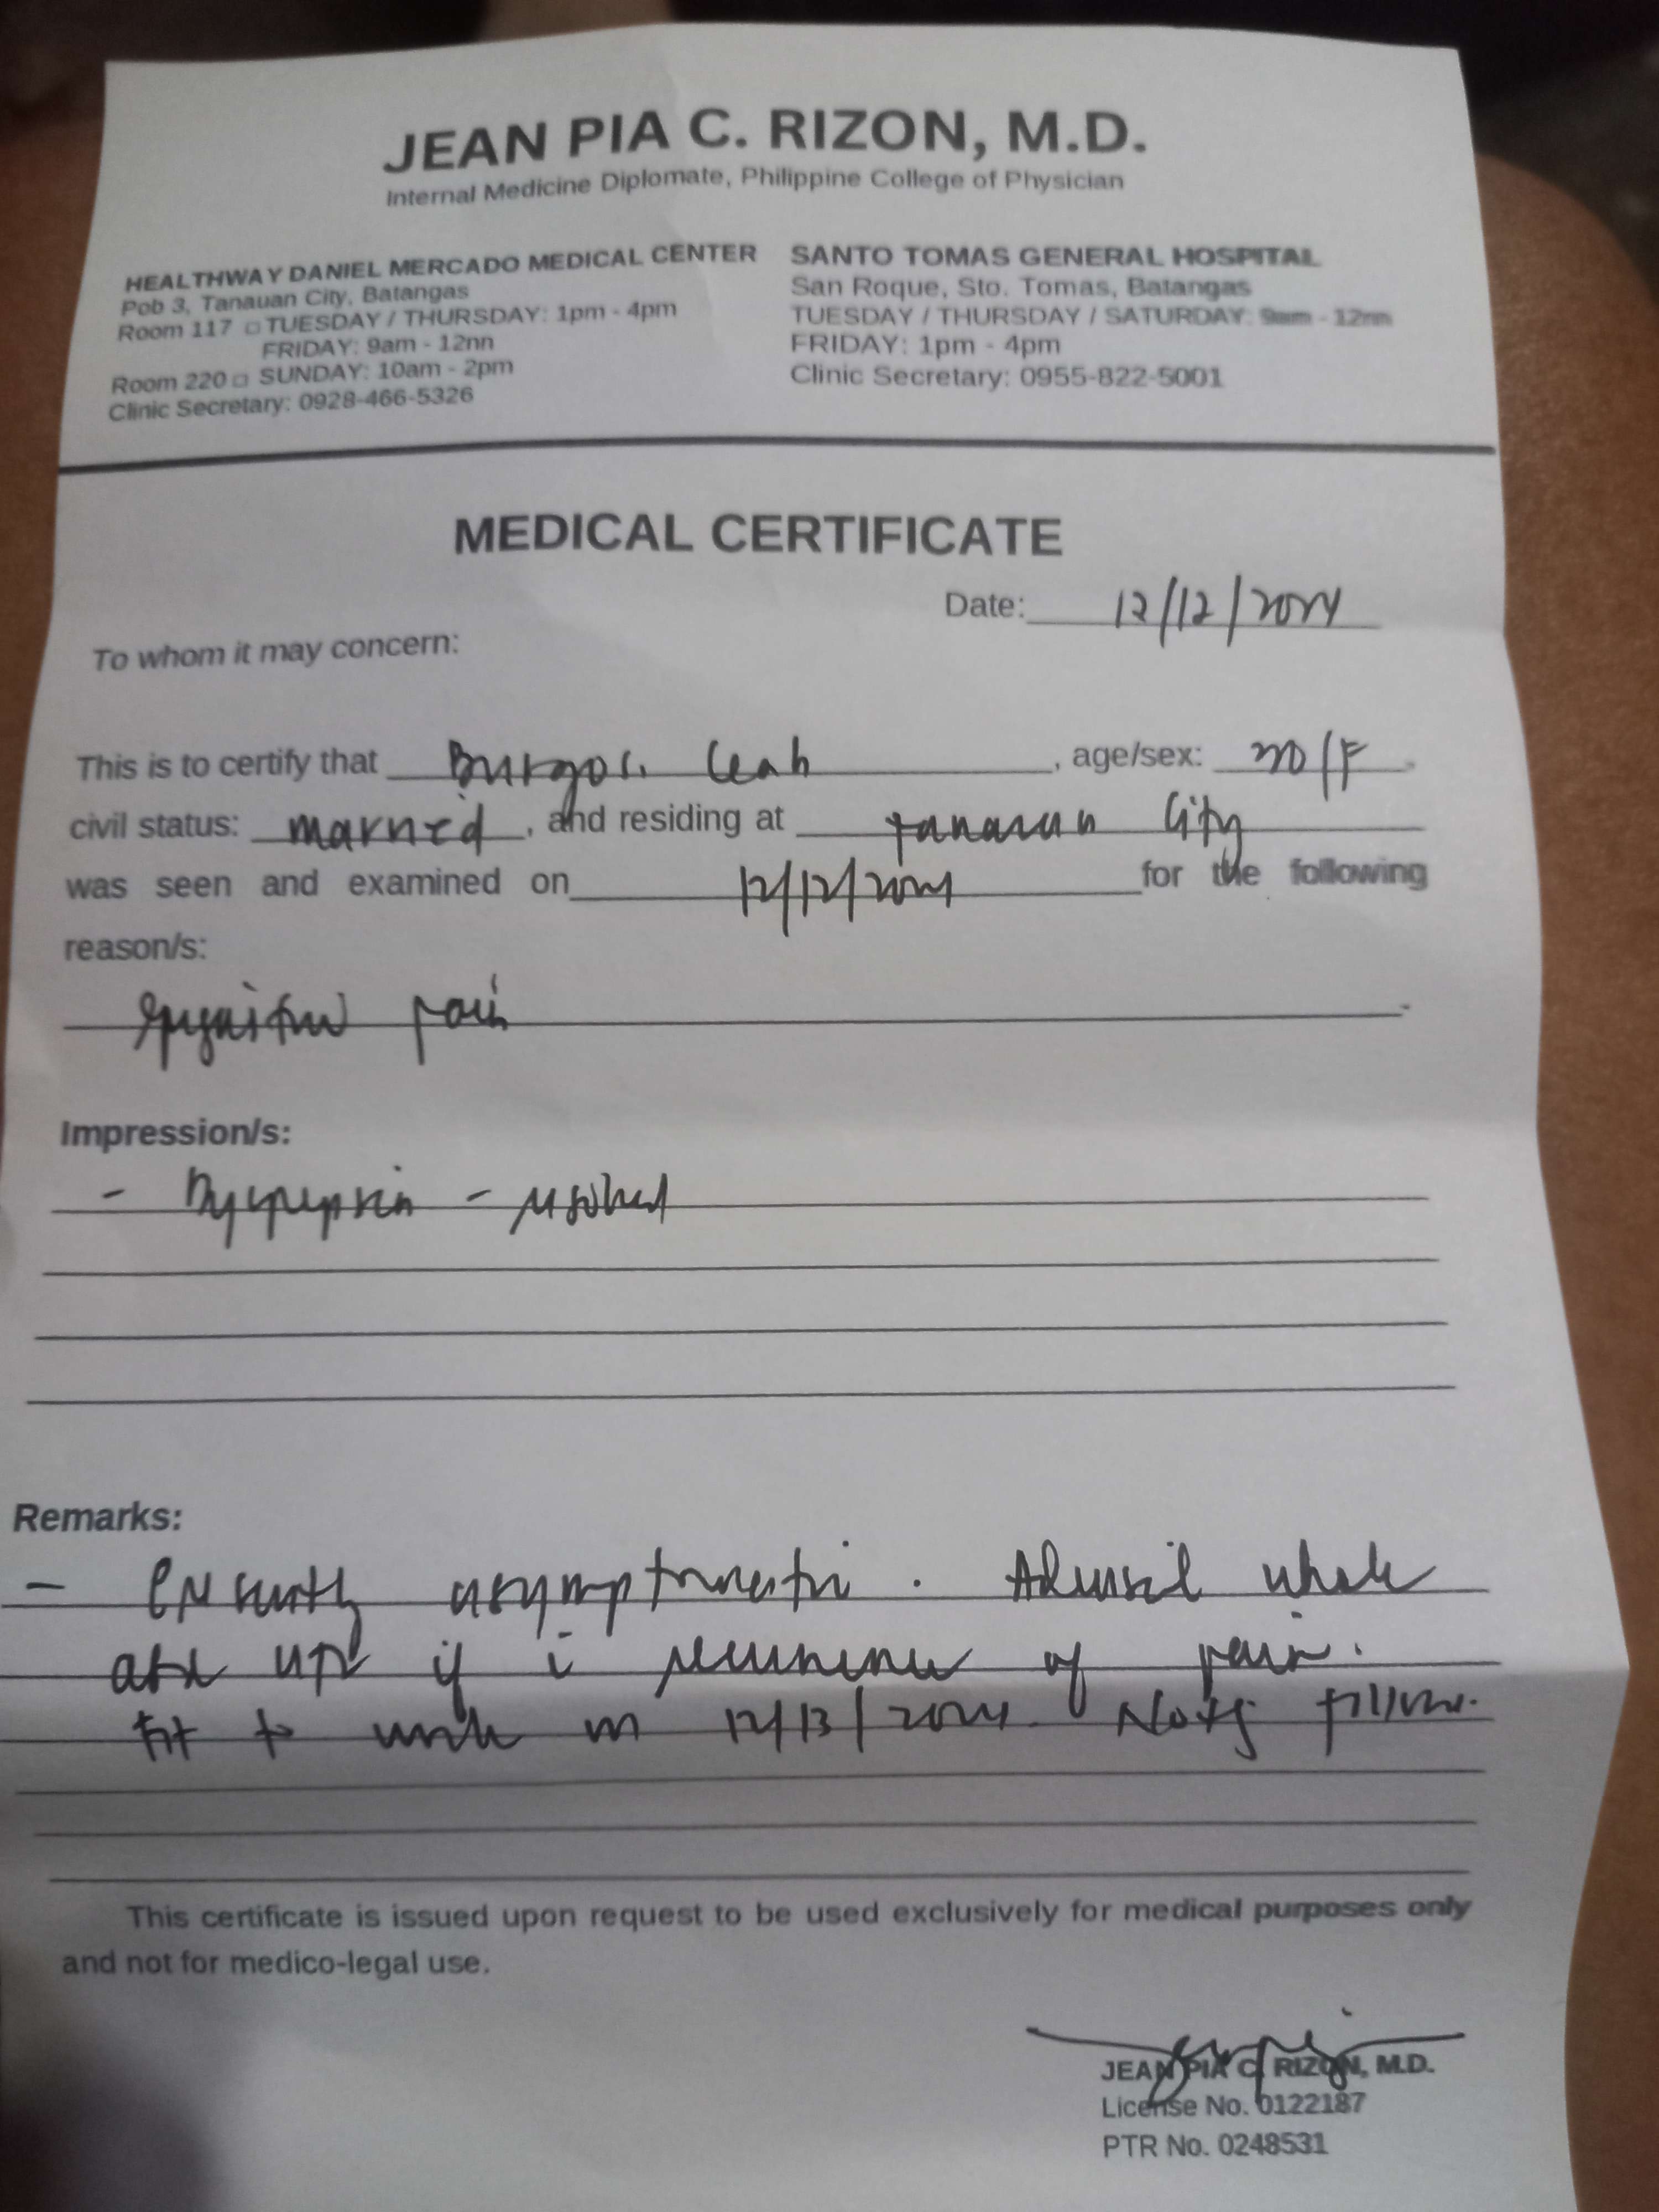 JEAN PIA C. RIZON, M.D.
Internal Medicine Diplomate, Philippine College of Physician
HEALTHWAY DANIEL MERCADO MEDICAL CENTER
Pob 3, Tanauan City, Batangas
Room 117 □ TUESDAY / THURSDAY: 1pm - 4pm
FRIDAY: 9am - 12nn
Room 220 □ SUNDAY: 10am - 2pm
Clinic Secretary: 0928-466-5326
SANTO TOMAS GENERAL HOSPITAL
San Roque, Sto. Tomas, Batangas
TUESDAY / THURSDAY / SATURDAY: 9am - 12nn
FRIDAY: 1pm - 4pm
Clinic Secretary: 0955-822-5001
MEDICAL CERTIFICATE
Date: 12/12/2024
To whom it may concern:
This is to certify that Burgos, Leah, age/sex: /F
civil status: married, and residing at Tanauan City
was seen and examined on 12/12/2024 for the following
reason/s:
Epigastric pain
Impression/s:
- Dyspepsia - resolved
Remarks:
- Currently asymptomatic. Advised
if recurrence of pain.
Fit to work on 12/13/2024.
This certificate is issued upon request to be used exclusively for medical purposes only
and not for medico-legal use.
JEAN PIA C. RIZON, M.D.
License No. 0122187
PTR No. 0248531